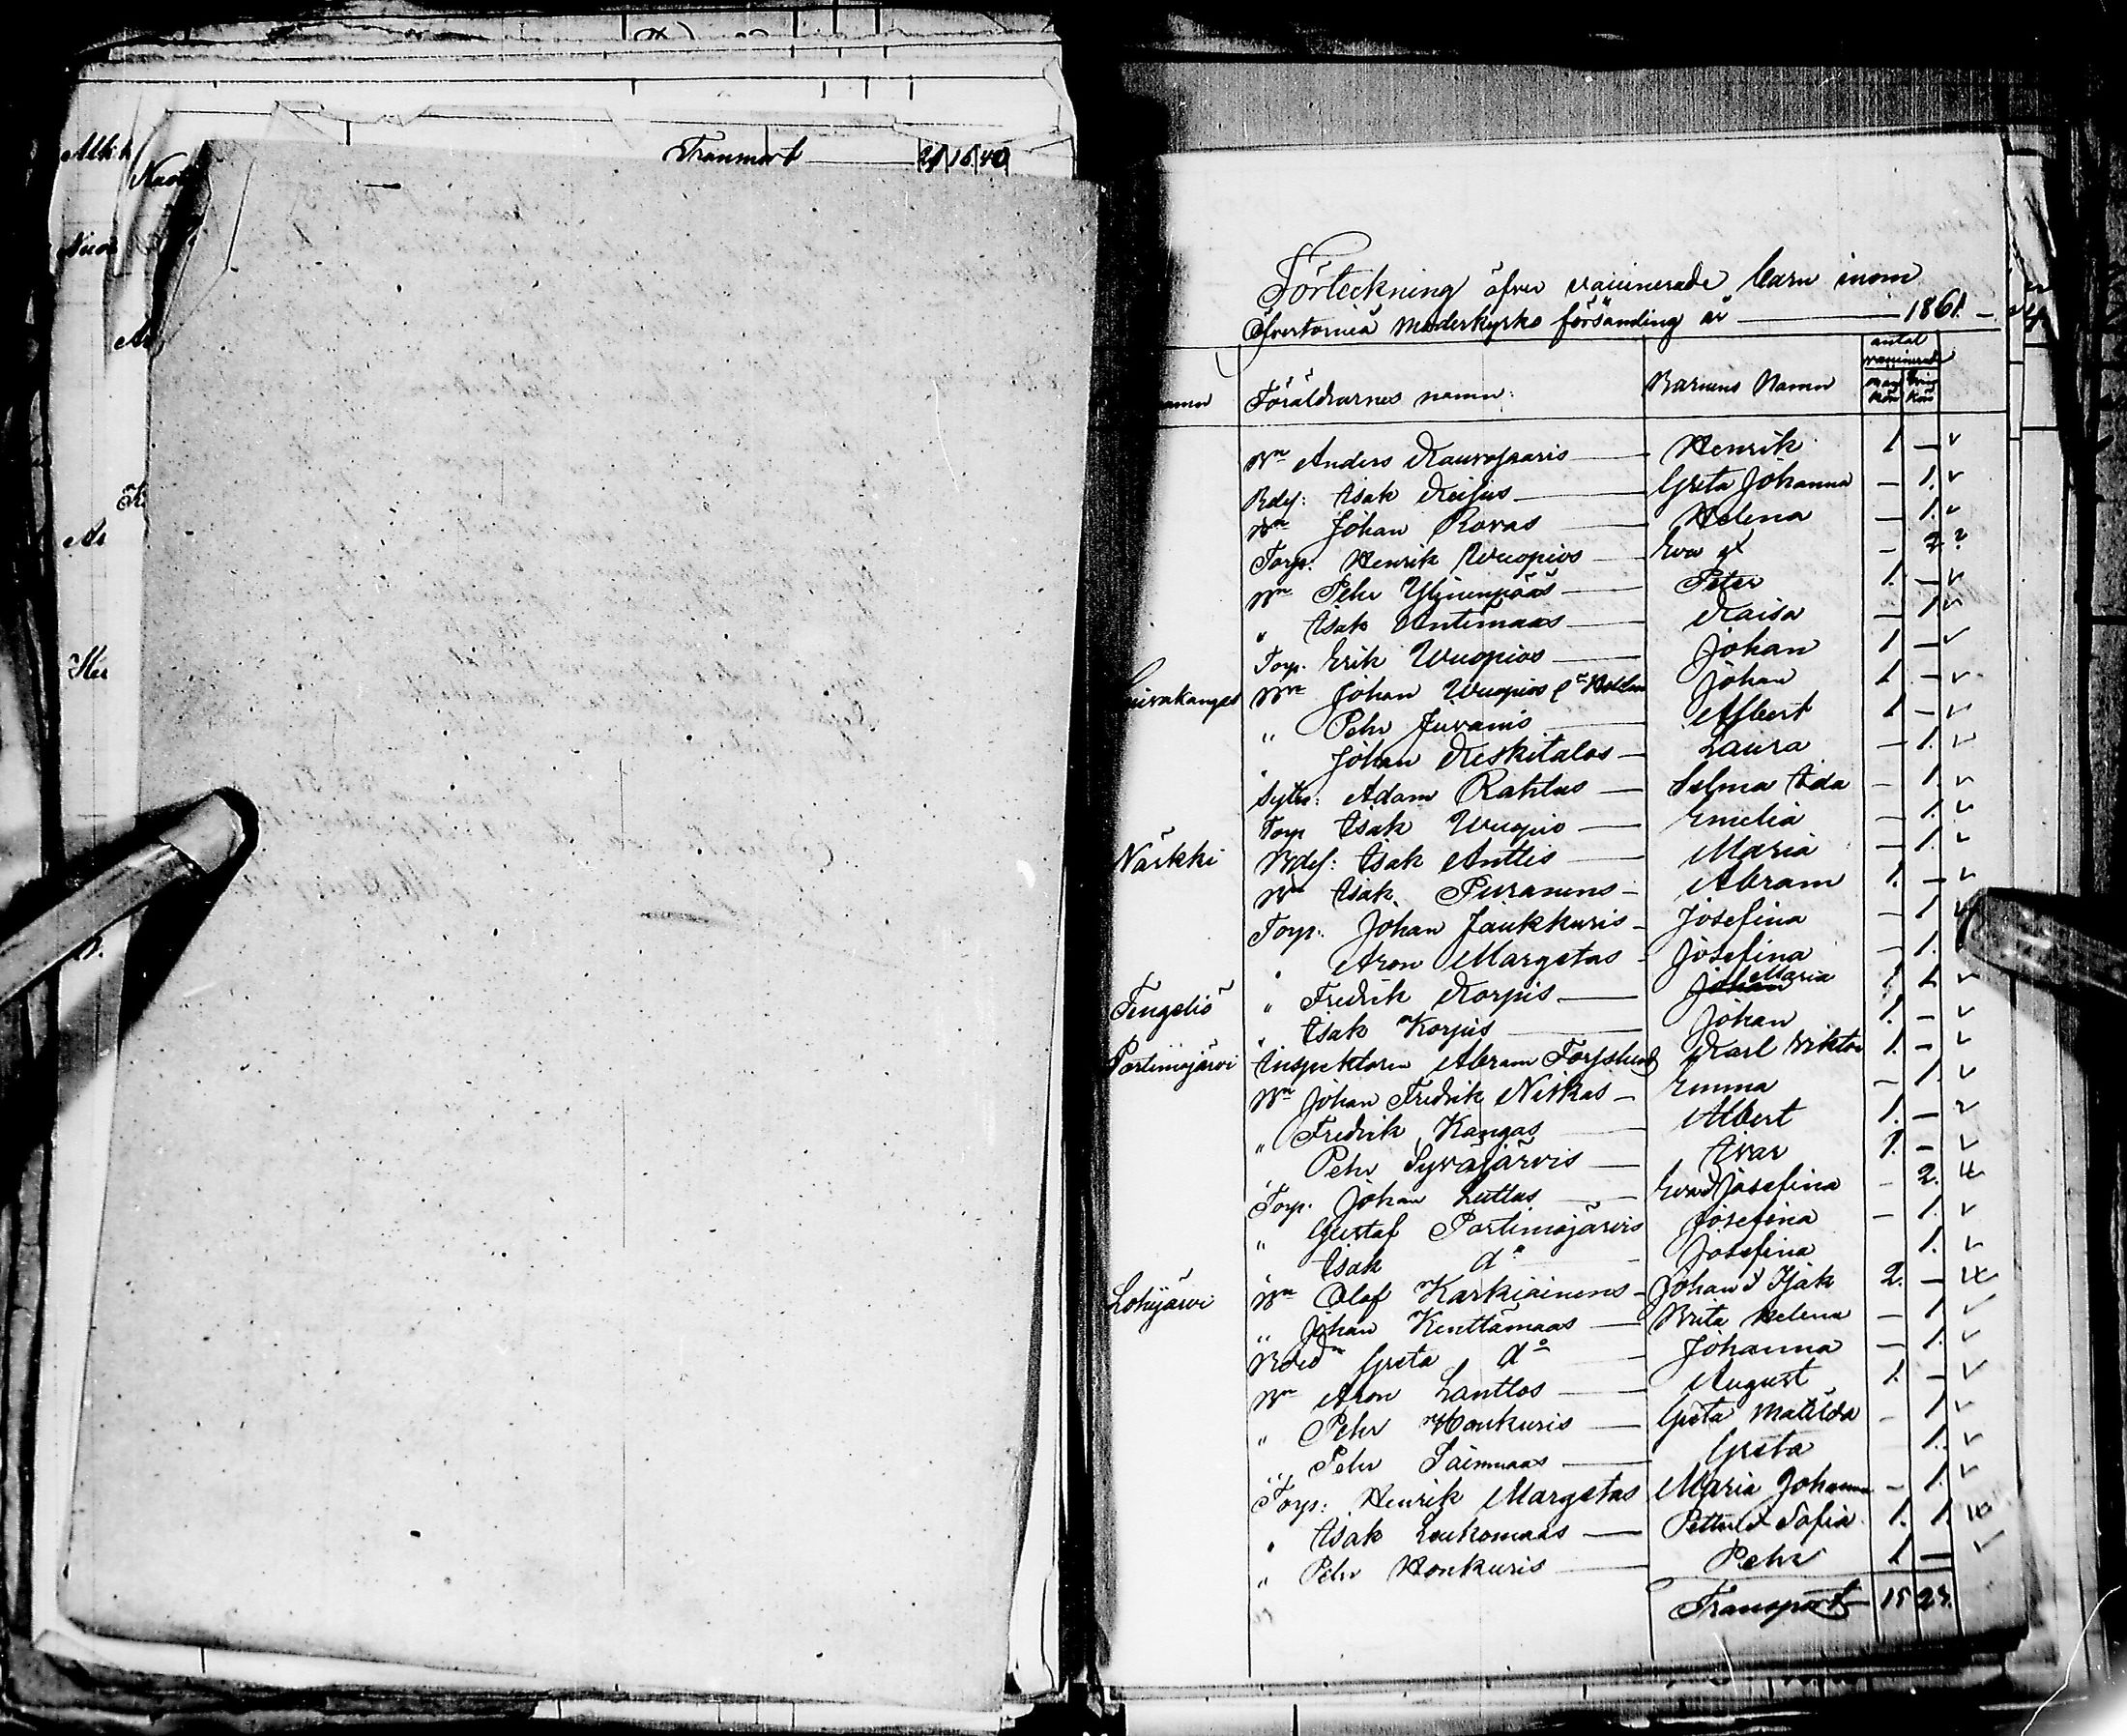 Transport 24 16 40
Förteckning öfver vaccinerade barn inom
Öfvertorneå Moderkyrko församling år — 1861. —
antal
vaccinerade
amn Föräldrarnes namn: Barnens Namn Man kön Qvin kön
Bn Anders Kauvosaaris — Henrik 1 —
Bdef: Isak Keisus — Greta Johanna — 1.
Bn Johan Rovas — Helena — 1.
Torp. Henrik Wuopios — Eva — 2
Bn Pehr Ylinenpääs — Peter 1. —
" Isak Antimaas — Kaisa — 1
Torp. Erik Wuopios — Johan 1 —
uivakangas Bn Johan Wuopios Johan 1 —
" Pehr Juvanis — Albert 1 —
" Johan Keskitalos — Laura — 1.
Sytn: Adam Rahtus — Selma Ida — 1.
Torp Isak Wuopio — Emelia — 1.
Närkki Bdef: Isak Anttis — Maria — 1.
Bn Isak Puranens — Abram 1. —
Torp. Johan Jaukkuris — Josefina — 1
" Aron Margetas — Josefina — 1.
Tengeliö " Fredrik Korpis — Johan Maria 1
" Isak Korpis — Johan 1. —
Portimojärvi Inspektoren Abram Forsslund Karl Viktor 1. —
Bn Johan Fredrik Niskas — Emma — 1.
" Fredrik Kangas — Albert 1. —
" Pehr Syväjärvis — Ivar 1. —
Torp. Johan Luttus — Eva & Josefina — 2.
" Gustaf Portimojärvis Josefina — 1.
" Isak do — Josefina 1.
Lohijärvi Bn Olof Karkiainens — Johan & Isak 2. —
" Johan Kenttämaas — Brita Helena — 1
Greta do — Johanna — 1.
Bn Aron Lanttos — August 1. —
" Pehr Honkuris — Greta Matilda — 1
" Pehr Saimaas — Greta 1.
Torp: Henrik Margetas Maria Johanna — 1.
" Isak Loukomaas — Petter & Sofia 1. 1.
" Pehr Honkuris — Pehr 1 —
Transport 15 23.